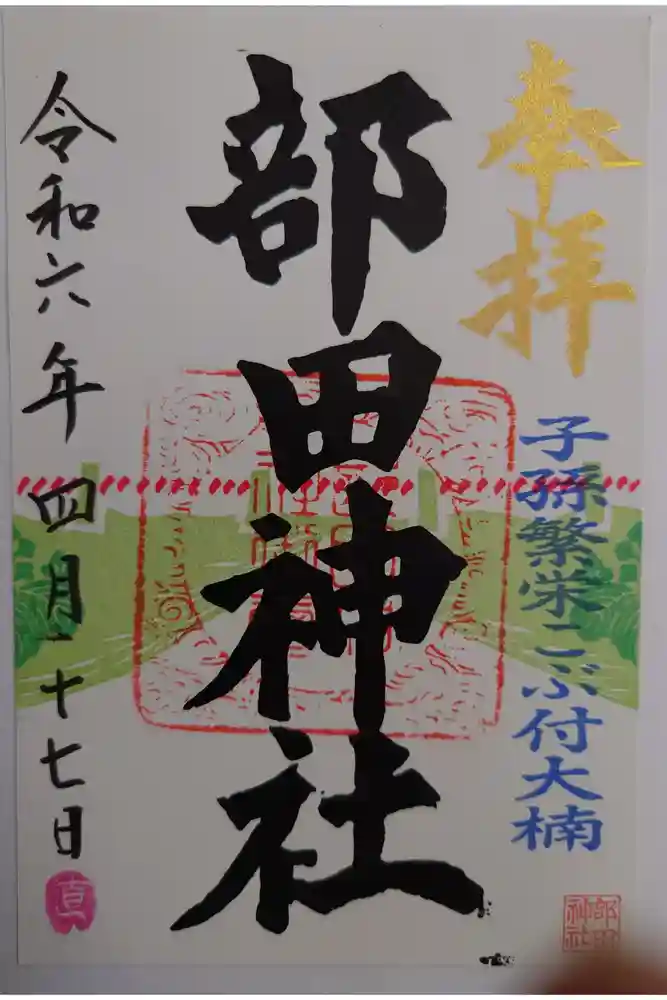 奉拝
子孫繁栄こぶ付大楠
部田神社
部田神社
令和六年四月二十七日